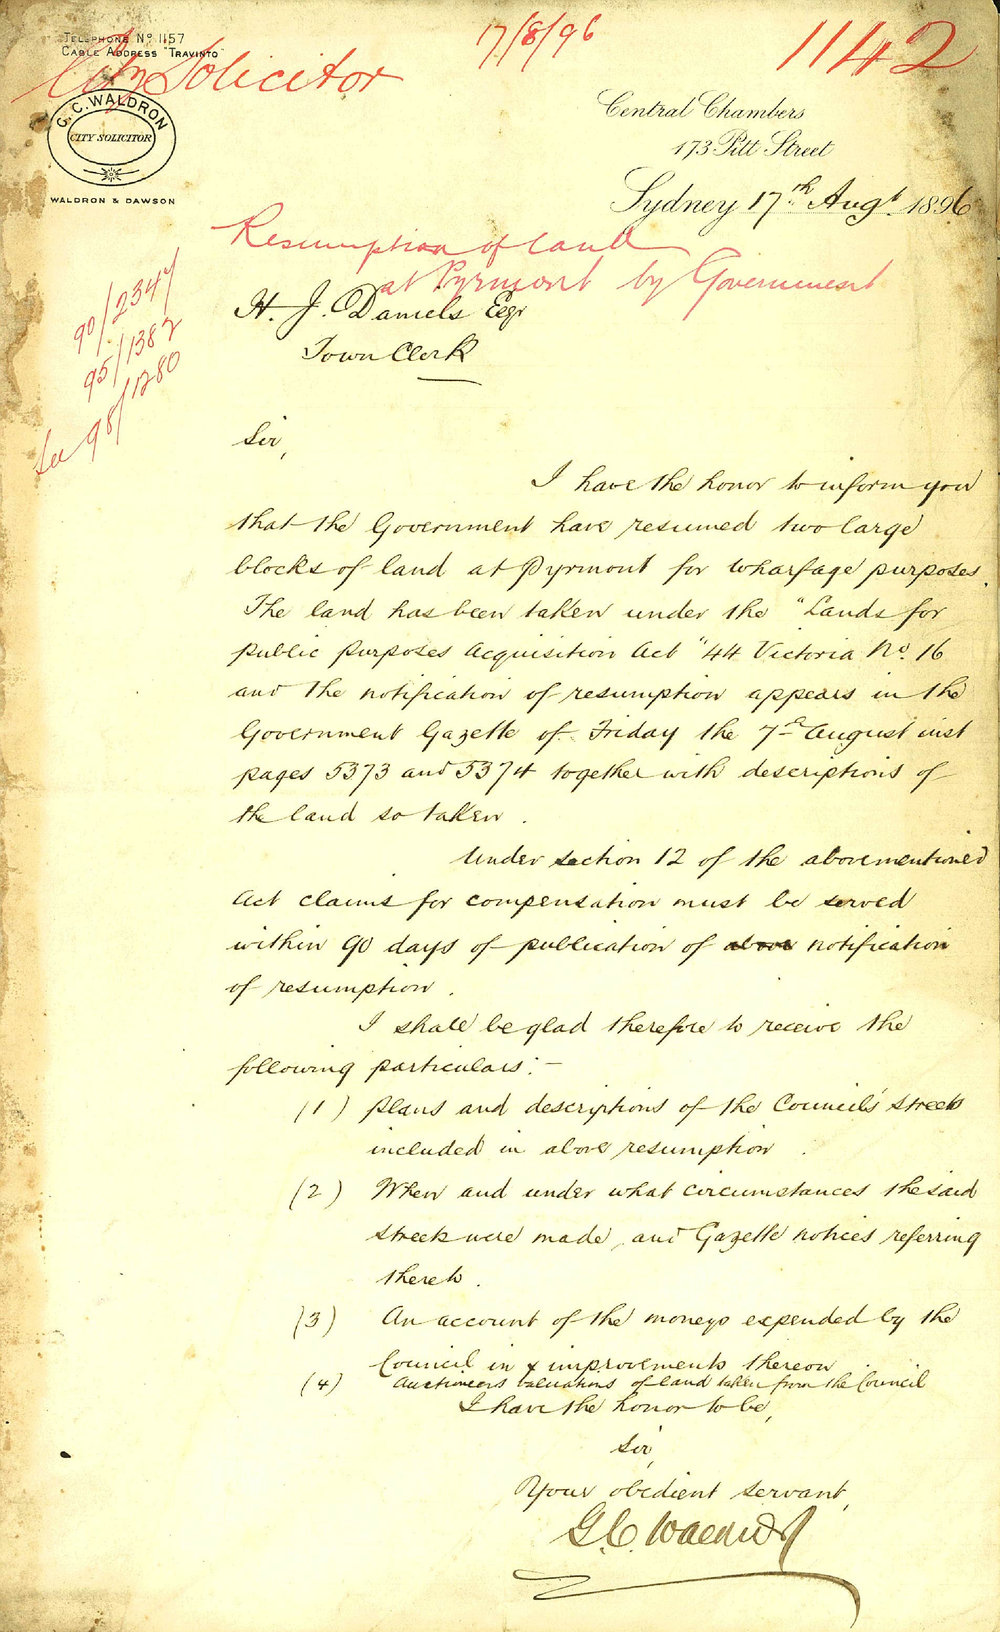 TELEPHONE Nº 1157
CABLE ADDRESS "TRAVINTO"
City Solicitor
17/8/96
1142
G.C. WALDRON
CITY SOLICITOR
WALDRON & DAWSON
Central Chambers
173 Pitt Street
Sydney 17th Augt 1896
Resumption of land
at Pyrmont by Government
90/2347
95/1382
See 98/1280
H. J. Daniels Esqr
Town Clerk
Sir,
I have the honor to inform you
that the Government have resumed two large
blocks of land at Pyrmont for wharfage purposes.
The land has been taken under the "Lands for
public purposes Acquisition Act" 44 Victoria No. 16
and the notification of resumption appears in the
Government Gazette of Friday the 7th August inst
pages 5373 and 5374 together with descriptions of
the land so taken.
Under section 12 of the abovementioned
Act claims for compensation must be served
within 90 days of publication of above notification
of resumption.
I shall be glad therefore to receive the
following particulars:-
(1) Plans and descriptions of the Council's streets
included in above resumption.
(2) When and under what circumstances the said
streets were made, and Gazette notices referring
thereto.
(3) An account of the moneys expended by the
Council in & improvements thereon
(4) Auctioneers valuations of land taken from the Council
I have the honor to be,
Sir,
Your obedient servant,
G.C. Waldron